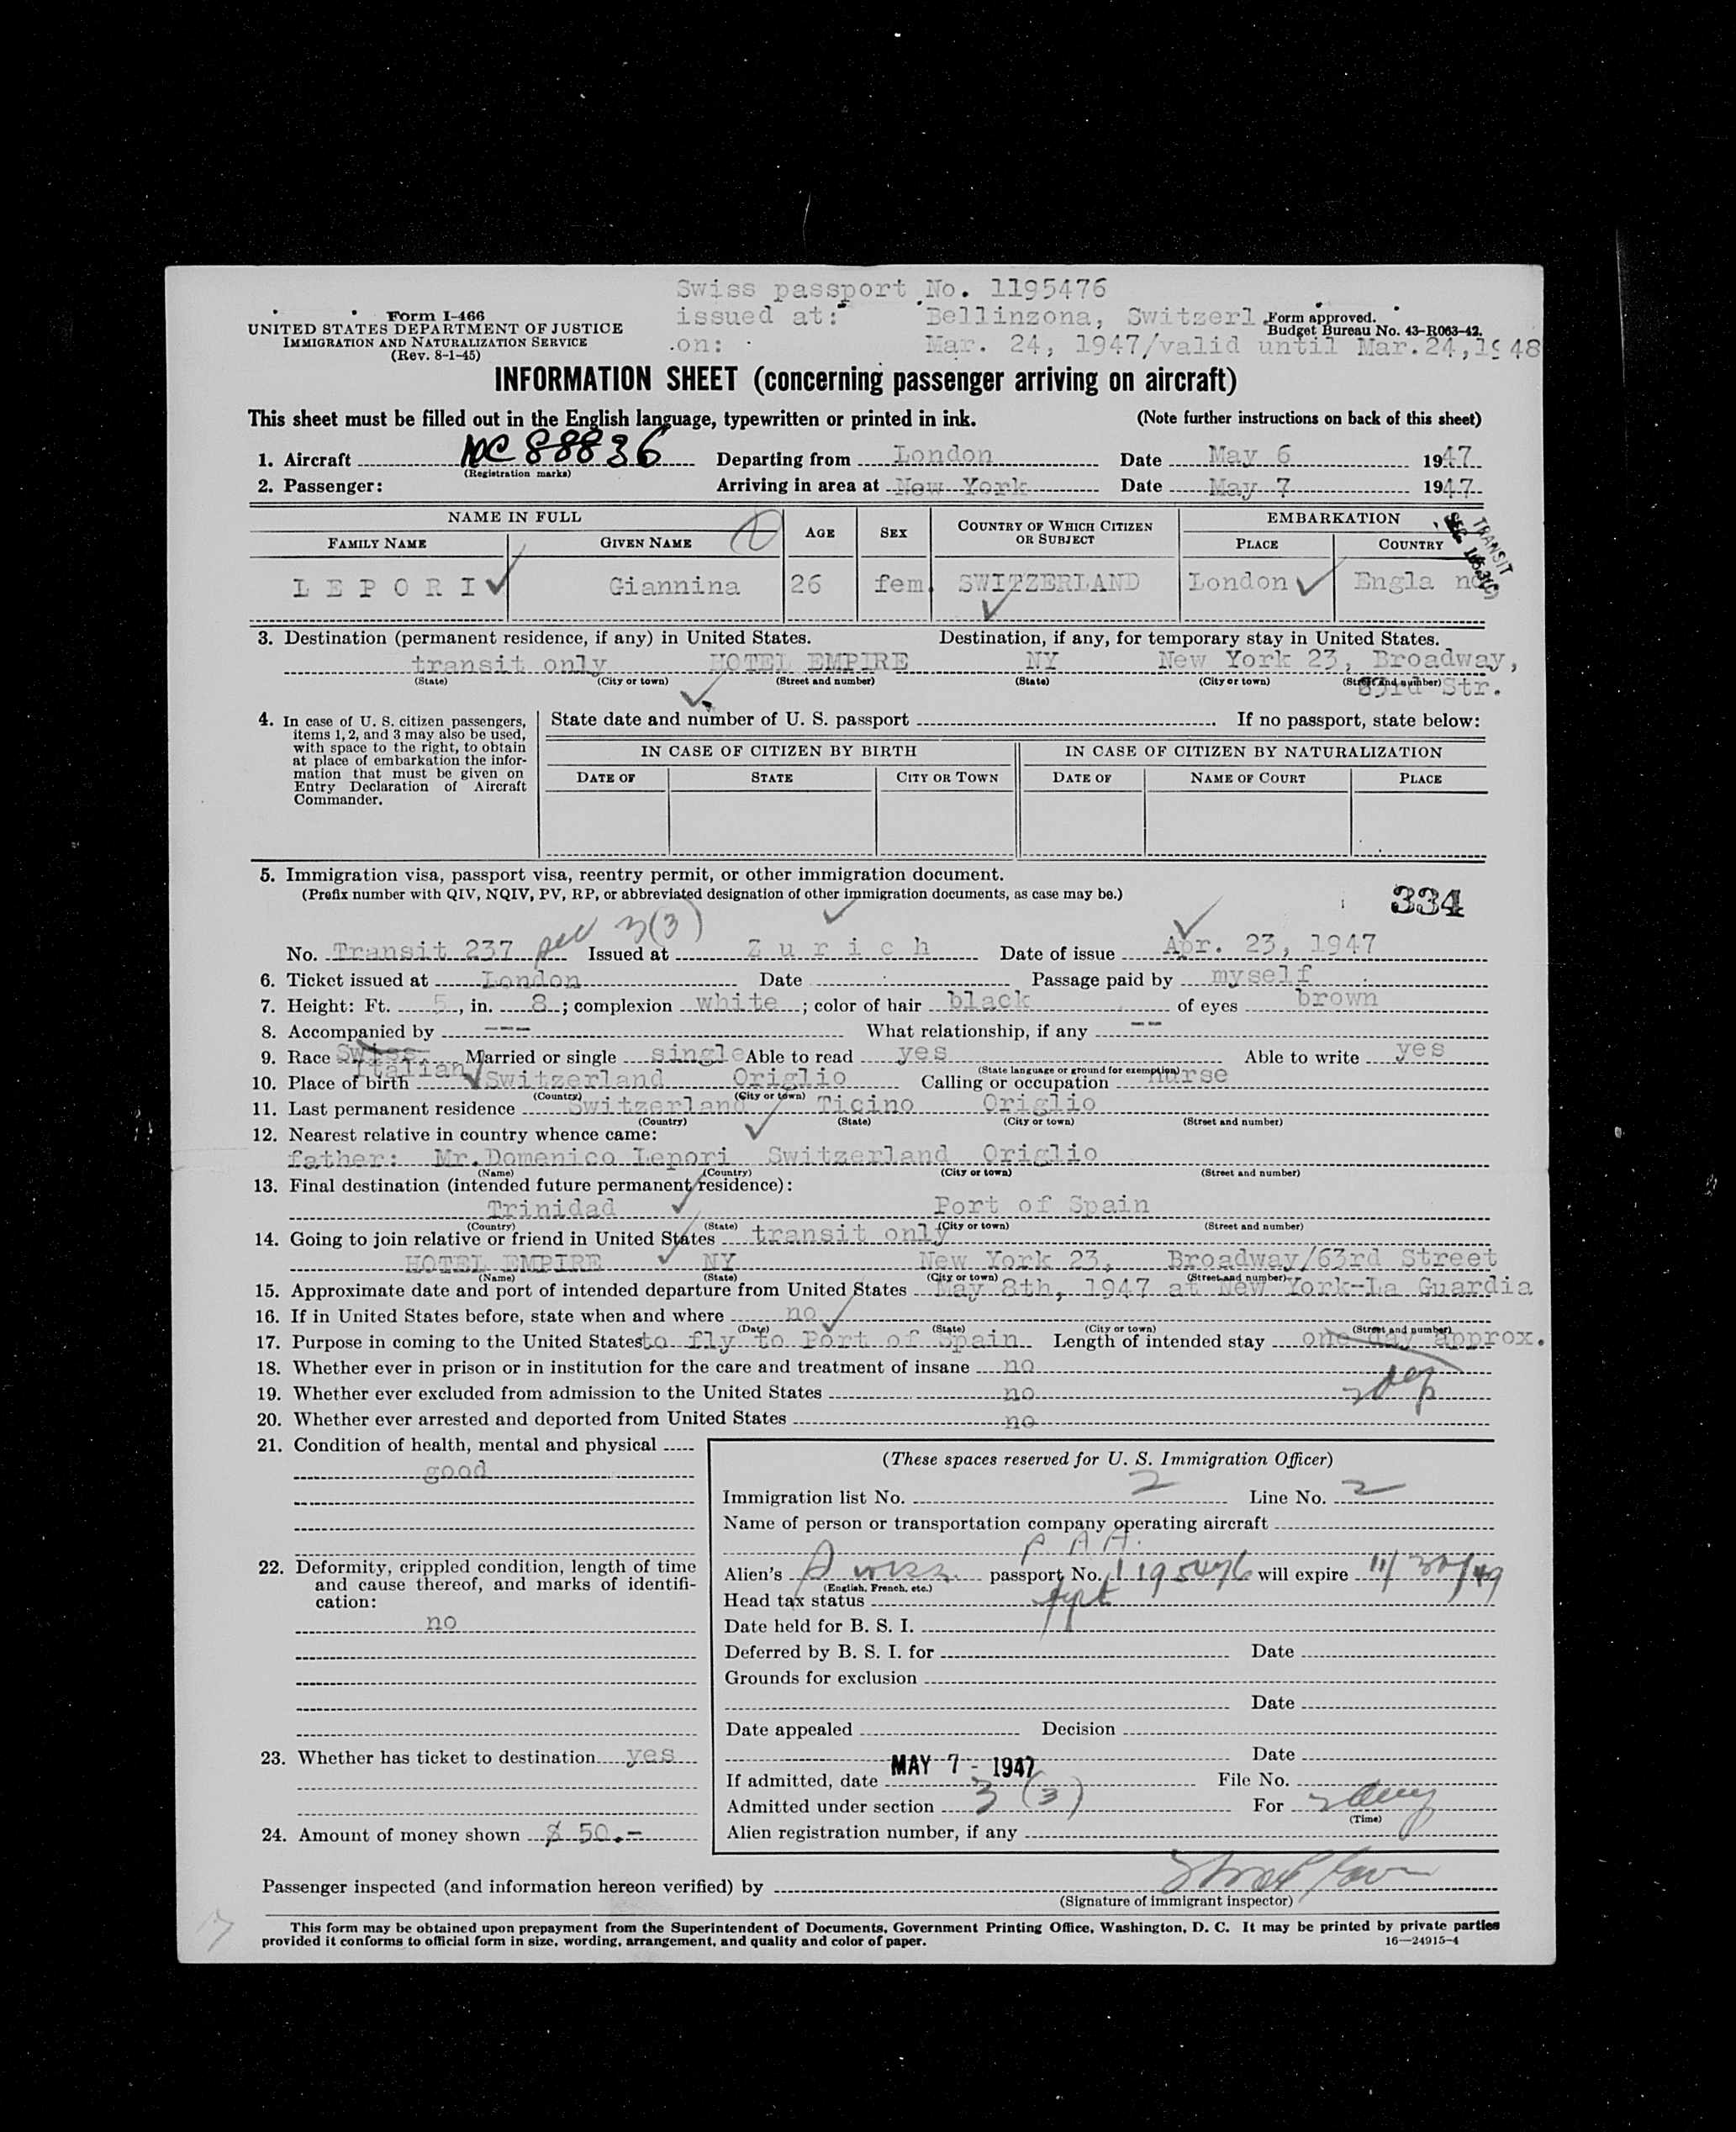 Swiss passport No. 1195476
issued at: Bellinzona, Switzerl.
on: Mar. 24, 1947/valid until Mar.24,1948
Form I-466
UNITED STATES DEPARTMENT OF JUSTICE
IMMIGRATION AND NATURALIZATION SERVICE
(Rev. 8-1-45)
Form approved.
Budget Bureau No. 43-R063-42.
INFORMATION SHEET (concerning passenger arriving on aircraft)
This sheet must be filled out in the English language, typewritten or printed in ink. (Note further instructions on back of this sheet)
1. Aircraft NC 88836 Departing from London Date May 6 1947
(Registration marks)
2. Passenger: Arriving in area at New York Date May 7 1947
NAME IN FULL AGE SEX COUNTRY OF WHICH CITIZEN OR SUBJECT EMBARKATION
FAMILY NAME GIVEN NAME PLACE COUNTRY
TRANSIT
L E P O R I Giannina 26 fem. SWITZERLAND London Engla nd
3. Destination (permanent residence, if any) in United States. Destination, if any, for temporary stay in United States.
transit only HOTEL EMPIRE NY New York 23, Broadway,
(State) (City or town) (Street and number) (State) (City or town) (Street and number)
63rd Str.
4. In case of U. S. citizen passengers, items 1, 2, and 3 may also be used, with space to the right, to obtain at place of embarkation the information that must be given on Entry Declaration of Aircraft Commander.
State date and number of U. S. passport If no passport, state below:
IN CASE OF CITIZEN BY BIRTH IN CASE OF CITIZEN BY NATURALIZATION
DATE OF STATE CITY OR TOWN DATE OF NAME OF COURT PLACE
5. Immigration visa, passport visa, reentry permit, or other immigration document.
(Prefix number with QIV, NQIV, PV, RP, or abbreviated designation of other immigration documents, as case may be.)
334
No. Transit 237 sec 3(3) Issued at Z u r i c h Date of issue Apr. 23, 1947
6. Ticket issued at London Date Passage paid by myself
7. Height: Ft. 5, in. 8; complexion white; color of hair black of eyes brown
8. Accompanied by --- What relationship, if any --
9. Race Swiss Italian Married or single single Able to read yes Able to write yes
(State language or ground for exemption)
10. Place of birth Switzerland Origlio Calling or occupation nurse
(Country) (City or town)
11. Last permanent residence Switzerland Ticino Origlio
(Country) (State) (City or town) (Street and number)
12. Nearest relative in country whence came:
father: Mr.Domenico Lepori Switzerland Origlio
(Name) (Country) (City or town) (Street and number)
13. Final destination (intended future permanent residence):
Trinidad Port of Spain
(Country) (State) (City or town) (Street and number)
14. Going to join relative or friend in United States transit only
HOTEL EMPIRE NY New York 23, Broadway/63rd Street
(Name) (State) (City or town) (Street and number)
15. Approximate date and port of intended departure from United States May 8th, 1947 at New York-La Guardia
16. If in United States before, state when and where no
(Date) (State) (City or town) (Street and number)
17. Purpose in coming to the United States to fly to Port of Spain Length of intended stay one day approx.
18. Whether ever in prison or in institution for the care and treatment of insane no
19. Whether ever excluded from admission to the United States no
20. Whether ever arrested and deported from United States no
21. Condition of health, mental and physical
good
22. Deformity, crippled condition, length of time and cause thereof, and marks of identification:
no
23. Whether has ticket to destination yes
24. Amount of money shown $ 50.-
(These spaces reserved for U. S. Immigration Officer)
Immigration list No. 2 Line No. 2
Name of person or transportation company operating aircraft
P A A.
Alien's Swiss passport No. 1195476 will expire 11/30/49
(English, French, etc.)
Head tax status
Date held for B. S. I.
Deferred by B. S. I. for Date
Grounds for exclusion
Date
Date appealed Decision
Date
MAY 7 - 1947
If admitted, date File No.
Admitted under section 3 (3) For
(Time)
Alien registration number, if any
Passenger inspected (and information hereon verified) by
(Signature of immigrant inspector)
This form may be obtained upon prepayment from the Superintendent of Documents, Government Printing Office, Washington, D. C. It may be printed by private parties
provided it conforms to official form in size, wording, arrangement, and quality and color of paper. 16—24915-4